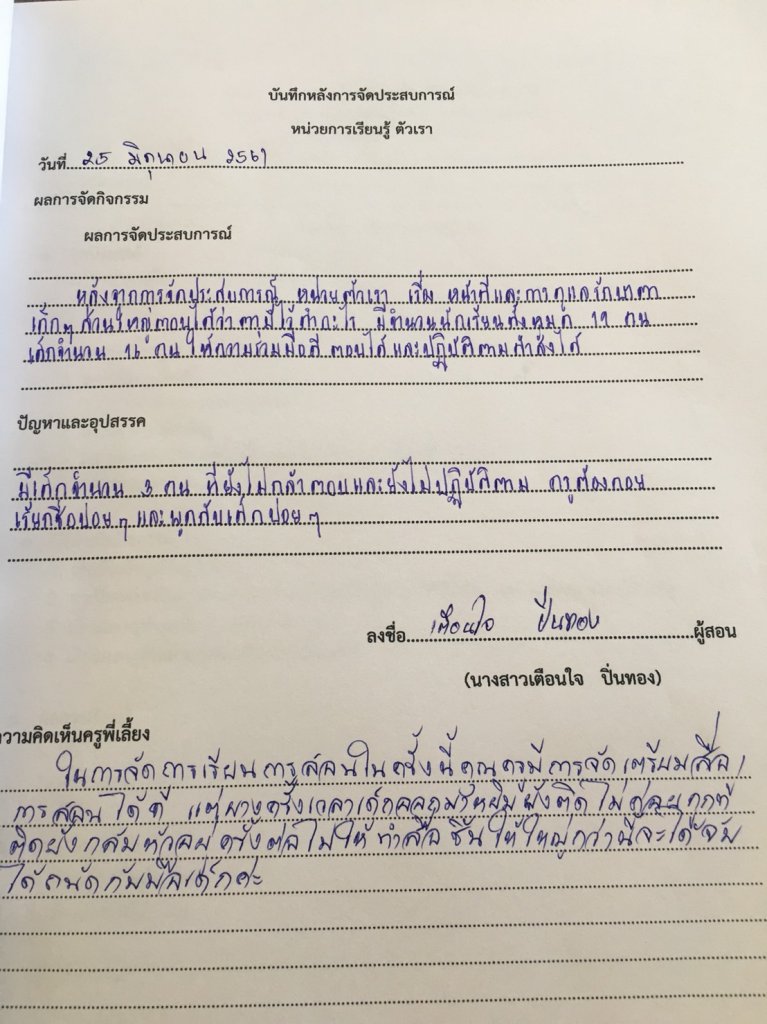 บันทึกหลังการจัดประสบการณ์
หน่วยการเรียนรู้ ตัวเรา
วันที่ 25 มิถุนายน 2561
ผลการจัดกิจกรรม
ผลการจัดประสบการณ์
หลังจากการจัดประสบการณ์ หน่วยตัวเรา เรื่อง หน้าที่และการดูแลรักษาตา
เด็กๆส่วนใหญ่ตอบได้ว่าตามีไว้ทำอะไร มีจำนวนนักเรียนทั้งหมด 19 คน
เด็กจำนวน 16 คน ให้ความร่วมมือดี ตอบได้และปฏิบัติตามคำสั่งได้
ปัญหาและอุปสรรค
มีเด็กจำนวน 3 คน ที่ยังไม่กล้าตอบและยังไม่ปฏิบัติตาม ครูต้องคอย
เรียกชื่อบ่อยๆ และพูดกับเด็กบ่อยๆ
ลงชื่อ เตือนใจ ปิ่นทอง ผู้สอน
(นางสาวเตือนใจ ปิ่นทอง)
วามคิดเห็นครูพี่เลี้ยง
ในการจัดการเรียนการสอนในครั้งนี้คุณครูมีการจัดเตรียมสื่อ
การสอนได้ดี แต่บางครั้งเวลาเด็กออกมาหยิบยังติดไม่ค่อยถูกที่
ติดยังกลับหัวอยู่ครั้งต่อไปให้ทำสื่อชิ้นให้ใหญ่กว่านี้จะได้จับ
ได้ถนัดกับมือเด็กค่ะ